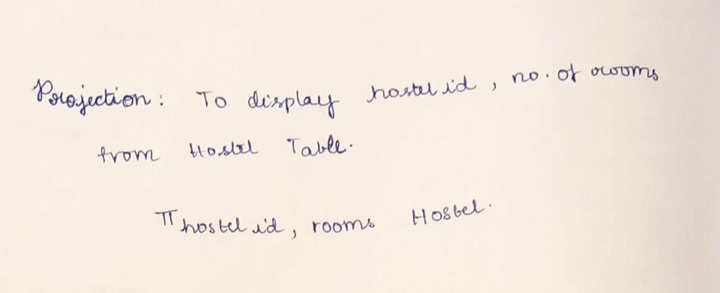 Projection: To display hostel id, no. of rooms
from Hostel Table.
π hostel id, rooms Hostel.